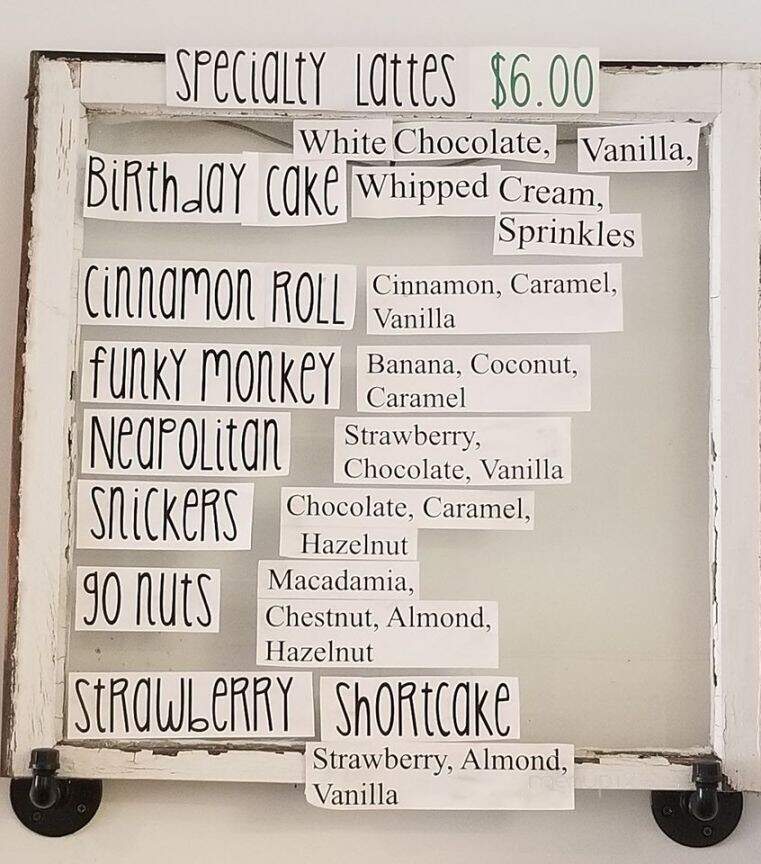 Specialty Lattes $6.00
White Chocolate, Vanilla,
Birthday Cake Whipped Cream,
Sprinkles
Cinnamon Roll Cinnamon, Caramel,
Vanilla
Funky Monkey Banana, Coconut,
Caramel
Neapolitan Strawberry,
Chocolate, Vanilla
Snickers Chocolate, Caramel,
Hazelnut
go nuts Macadamia,
Chestnut, Almond,
Hazelnut
Strawberry Shortcake
Strawberry, Almond,
Vanilla